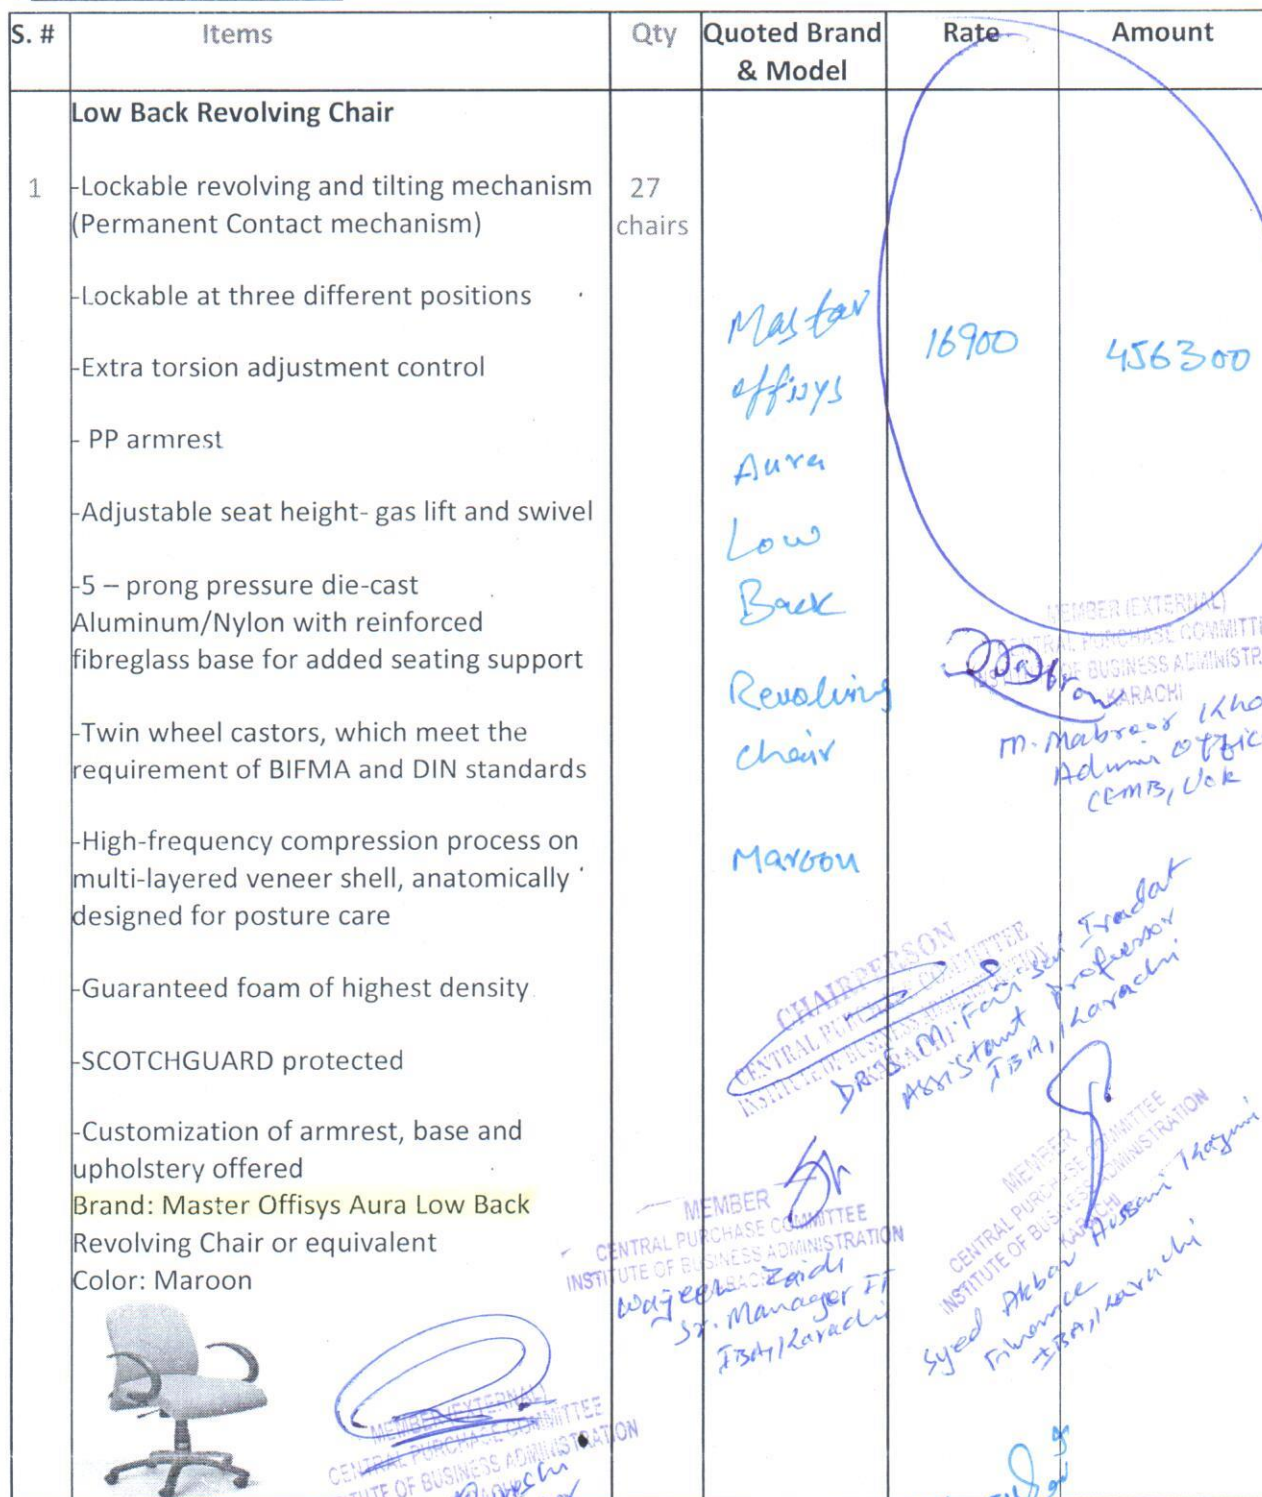 S. # Items Qty Quoted Brand & Model Rate Amount
Low Back Revolving Chair
1 -Lockable revolving and tilting mechanism 27
(Permanent Contact mechanism) chairs
-Lockable at three different positions
-Extra torsion adjustment control
- PP armrest
-Adjustable seat height- gas lift and swivel
-5 – prong pressure die-cast
Aluminum/Nylon with reinforced
fibreglass base for added seating support
-Twin wheel castors, which meet the
requirement of BIFMA and DIN standards
-High-frequency compression process on
multi-layered veneer shell, anatomically
designed for posture care
-Guaranteed foam of highest density
-SCOTCHGUARD protected
-Customization of armrest, base and
upholstery offered
Brand: Master Offisys Aura Low Back
Revolving Chair or equivalent
Color: Maroon
Master
offisys
Aura
Low
Back
Revolving
chair
Maroon
16900
456300
MEMBER (EXTERNAL)
CENTRAL PURCHASE COMMITTE
INSTITUTE OF BUSINESS ADMINISTR
KARACHI
M. Mabroor Kha
Admin Offic
CEMB, UoK
CHAIRPERSON
CENTRAL PURCHASE COMMITTEE
INSTITUTE OF BUSINESS ADMINISTRATION
KARACHI
Iradat
Assistant Professor
IBA, Karachi
MEMBER
CENTRAL PURCHASE COMMITTEE
INSTITUTE OF BUSINESS ADMINISTRATION
KARACHI
Wajeeh Zaidi
Sr. Manager IT
IBA, Karachi
MEMBER
CENTRAL PURCHASE COMMITTEE
INSTITUTE OF BUSINESS ADMINISTRATION
KARACHI
Syed Akbar
Finance
IBA, Karachi
MEMBER (EXTERNAL)
CENTRAL PURCHASE COMMITTEE
TUTE OF BUSINESS ADMINISTRATION